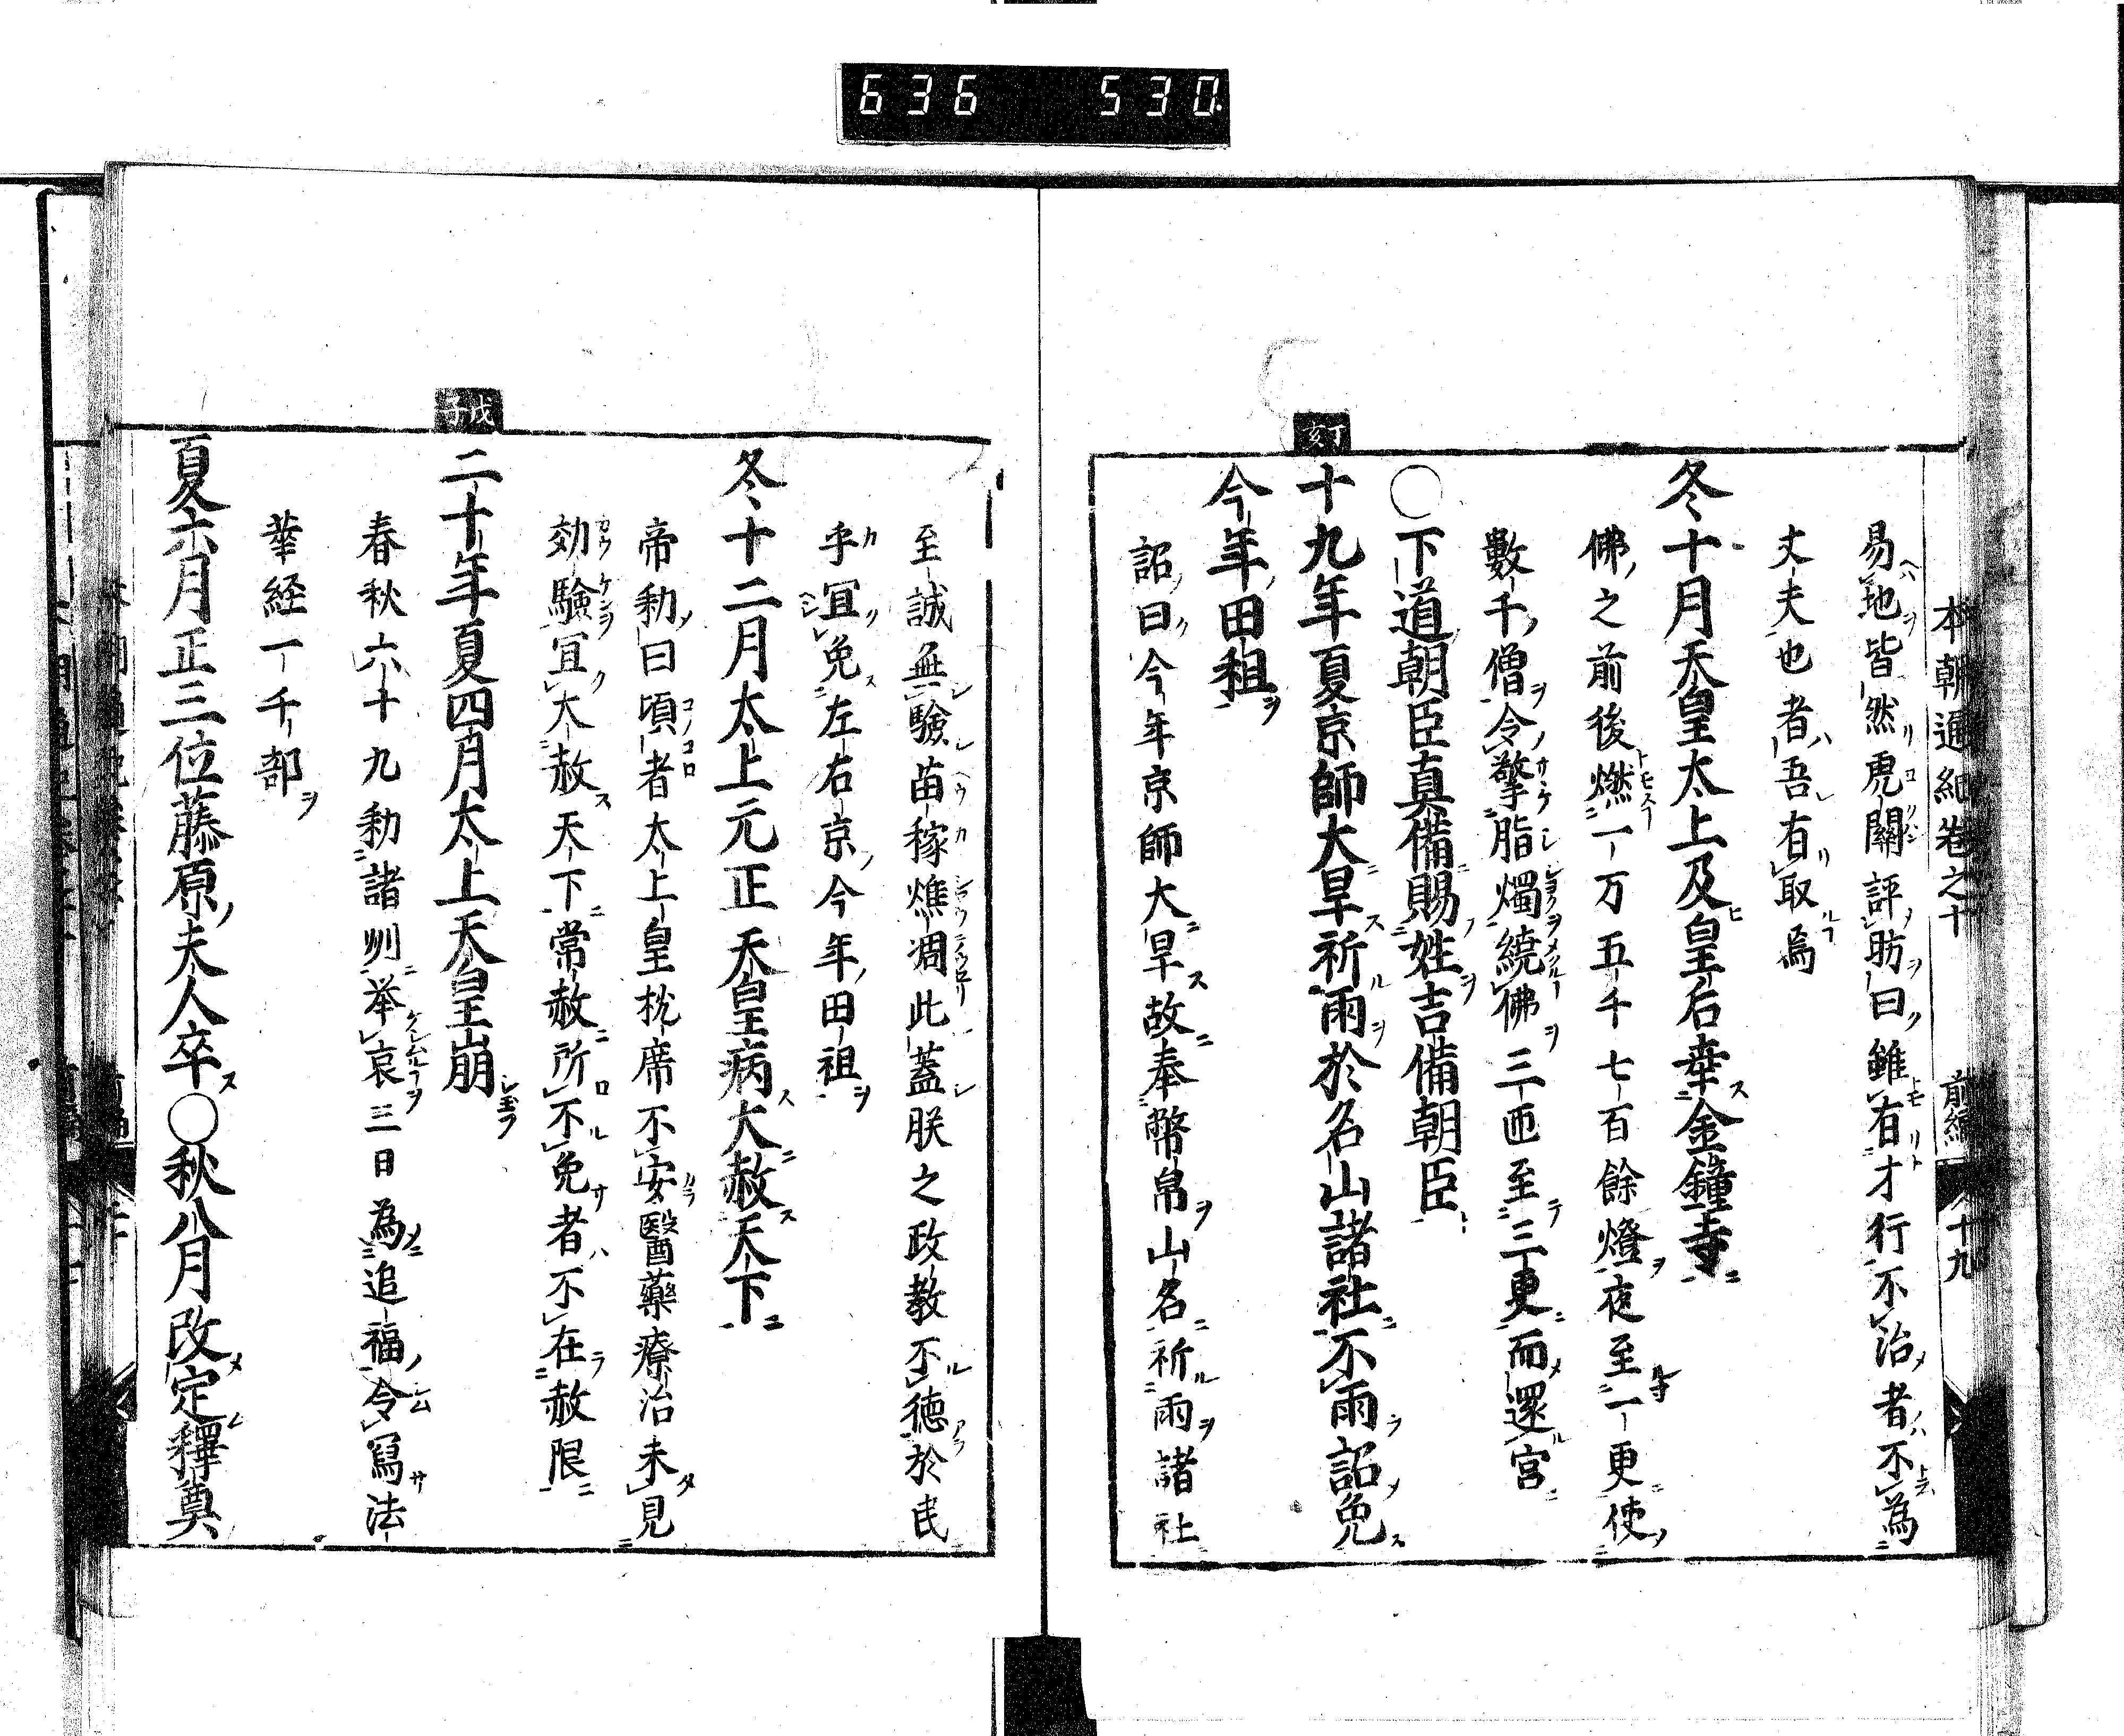 636 530
本朝通紀卷之十 前編 十九
易地皆然虎關評肪曰雖有才行不治者不為
丈夫也者吾有取焉
冬十月天皇太上及皇后幸金鐘寺
佛之前後燃一万五千七百餘燈夜至一更使
數千僧令擎脂燭繞佛三匝至三更而還宮
○下道朝臣真備賜姓吉備朝臣
丁亥
十九年夏京師大旱祈雨於名山諸社不雨詔免
今年田租
詔曰今年京師大旱故奉幣帛山名祈雨諸社
至誠無驗苗稼燋凋此蓋朕之政教不徳於民
乎宜免左右京今年田租
冬十二月太上元正天皇病大赦天下
帝勅曰頃者太上皇枕席不安醫藥療治未見
効驗宜大赦天下常赦所不免者不在赦限
戊子
二十年夏四月太上天皇崩
春秋六十九勅諸州举哀三日為追福令寫法
華経一千部
夏六月正三位藤原夫人卒○秋八月改定釋奠